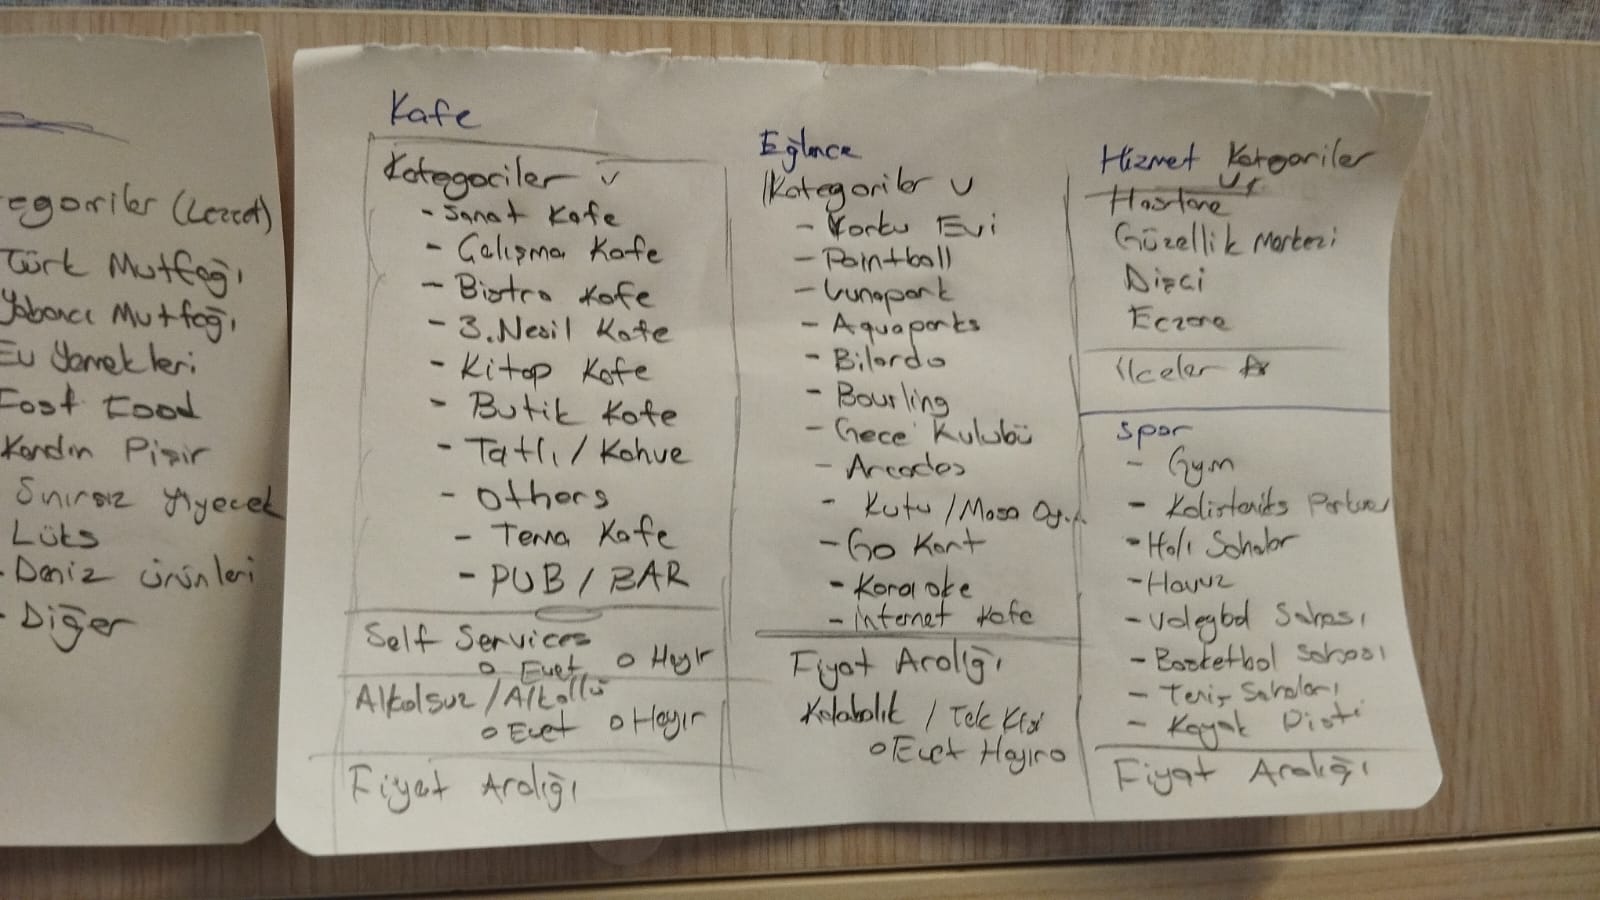 egoriler (Lezzet)
Türk Mutfağı
Yabancı Mutfağı
Ev Yemekleri
Fast Food
Kendin Pişir
Sınırsız Yiyecek
Lüks
- Deniz ürünleri
- Diğer
Kafe
Kategoriler
- Sanat Kafe
- Çalışma Kafe
- Bistro Kafe
- 3. Nesil Kafe
- Kitap Kafe
- Butik Kafe
- Tatlı / Kahve
- Others
- Tema Kafe
- PUB / BAR
Self Services
o Evet o Hayır
Alkolsuz / Alkollü
o Evet o Hayır
Fiyat Aralığı
Eğlence
Kategoriler
- Korku Evi
- Paintball
- Lunapark
- Aquaparks
- Bilardo
- Bourling
- Gece Kulubü
- Arcades
- Kutu / Masa
- Go Kart
- Karaoke
- internet Kafe
Fiyat Aralığı
Kalabalık / Tek Kişi
o Evet Hayır o
Hizmet Kategoriler
Hastane
Güzellik Merkezi
Dişci
Eczane
ilceler
Spor
- Gym
- Kalistenits Parkuru
- Halı Sahalar
- Havuz
- Voleybol Sahası
- Basketbol Sahası
- Tenis Sahaları
- Kayak Pisti
Fiyat Aralığı